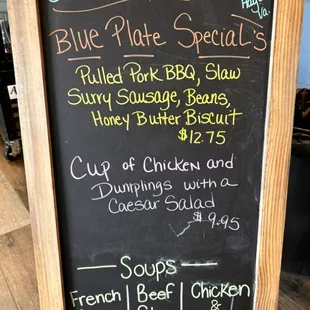 Va.
Blue Plate Special's
Pulled Pork BBQ, Slaw
Surry Sausage, Beans,
Honey Butter Biscuit
$12.75
Cup of Chicken and
Dumplings with a
Caesar Salad
$9.95
Soups
French | Beef | Chicken
&